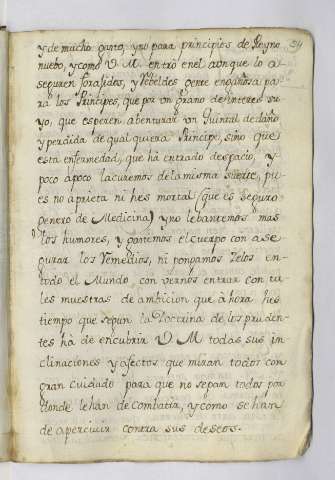 y de mucho gasto, y no para principios de Reyno
nuebo, y como V M. entrò en el aunque lo a
seguren foragidos, y rebeldes gente engañosa pa
ra los Principes, que por un grano de interes su
yo, que esperen, abenturan un Quintal de daño
y perdida de qual quiera Principe, sino que
esta enfermedad, que hà entrado despacio, y
poco apoco la curemos de la misma suerte, pu
es no aprieta ni hes mortal (que es seguro
genero de Medicina) y no lebantemos mas
los humores, y gastemos el cuerpo con a se
gurar los remedios, ni pongamos zelos en
todo el Mundo, con vernos entrar con ta
les muestras de ambicion que à hora hes
tiempo que segun la Doctrina de los pruden
tes hà de encubrir V M todas sus in
clinaciones y afectos que miran todos con
gran cuidado para que no sepan todos por
donde le han de combatir, y como se han
de apercivir contra sus deseos.